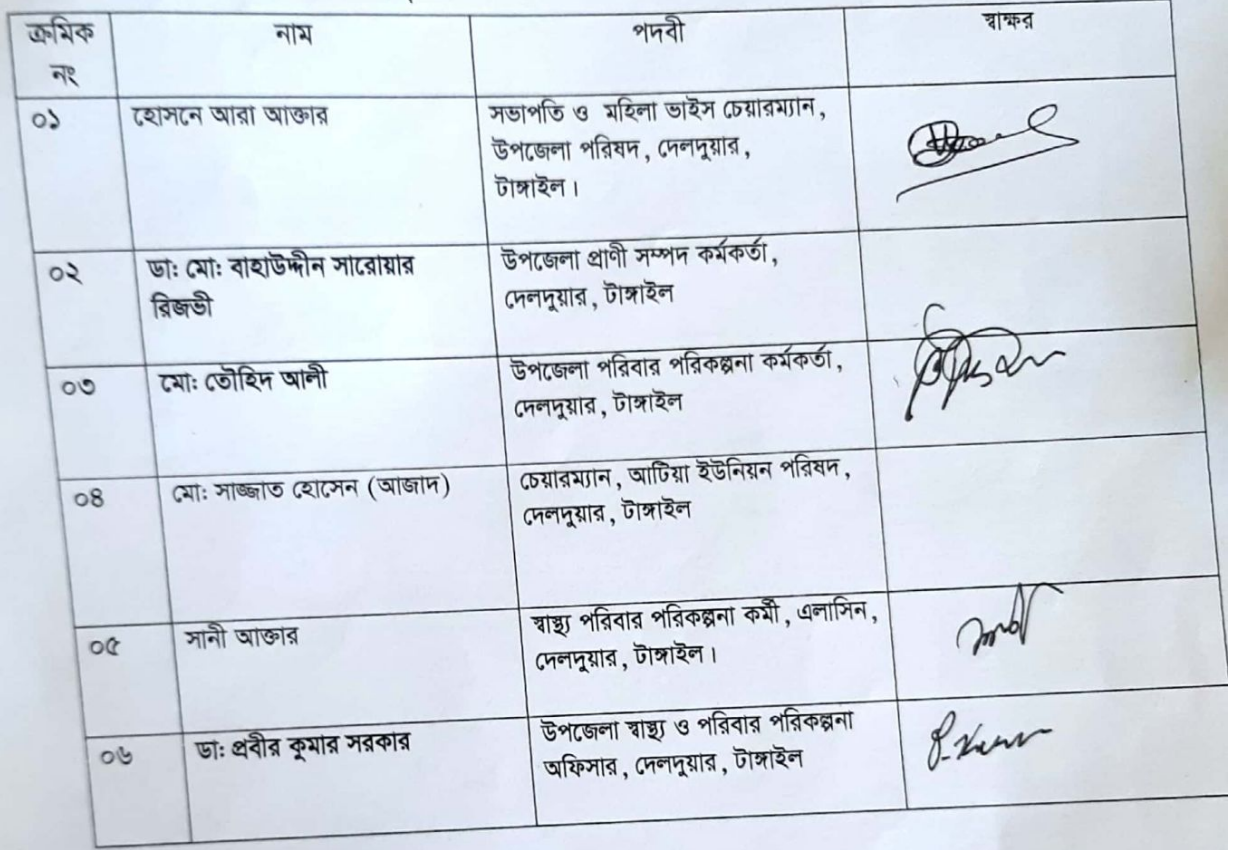 ক্রমিক নং নাম পদবী স্বাক্ষর
০১ হোসনে আরা আক্তার সভাপতি ও মহিলা ভাইস চেয়ারম্যান,
উপজেলা পরিষদ, দেলদুয়ার,
টাঙ্গাইল।
০২ ডা: মো: বাহাউদ্দীন সারোয়ার
রিজভী
উপজেলা প্রাণী সম্পদ কর্মকর্তা,
দেলদুয়ার, টাঙ্গাইল
০৩ মো: তৌহিদ আলী উপজেলা পরিবার পরিকল্পনা কর্মকর্তা,
দেলদুয়ার, টাঙ্গাইল
০৪ মো: সাজ্জাত হোসেন (আজাদ) চেয়ারম্যান, আটিয়া ইউনিয়ন পরিষদ,
দেলদুয়ার, টাঙ্গাইল
০৫ সানী আক্তার স্বাস্থ্য পরিবার পরিকল্পনা কর্মী, এলাসিন,
দেলদুয়ার, টাঙ্গাইল।
০৬ ডা: প্রবীর কুমার সরকার উপজেলা স্বাস্থ্য ও পরিবার পরিকল্পনা
অফিসার, দেলদুয়ার, টাঙ্গাইল